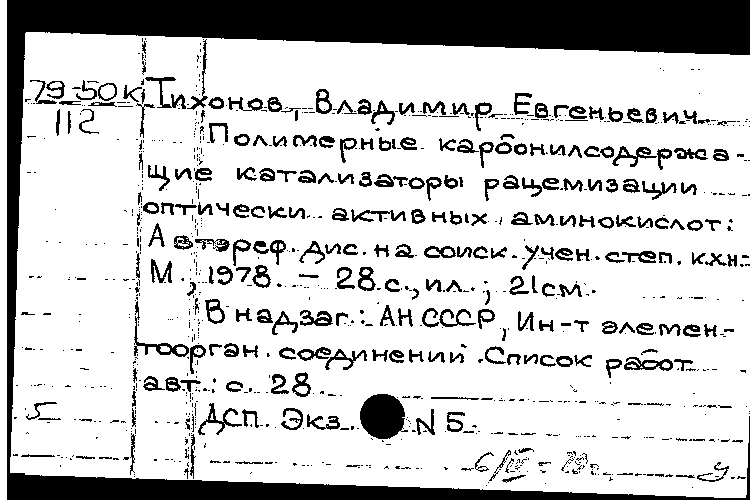 79-50к Тихонов, Владимир Евгеньевич.
112
Полимерные карбонилсодержа-
щие катализаторы рацемизации
оптически активных аминокислот:
Автореф. дис. на соиск. учен. степ. к.х.н.
М., 1978. – 28 с., ил.; 21 см.
В надзаг.: АН СССР, Ин-т элемен-
тоорган. соединений. Список работ
авт.: с. 28.
5 ДСП. Экз. N 5.
6/IV-79г. У